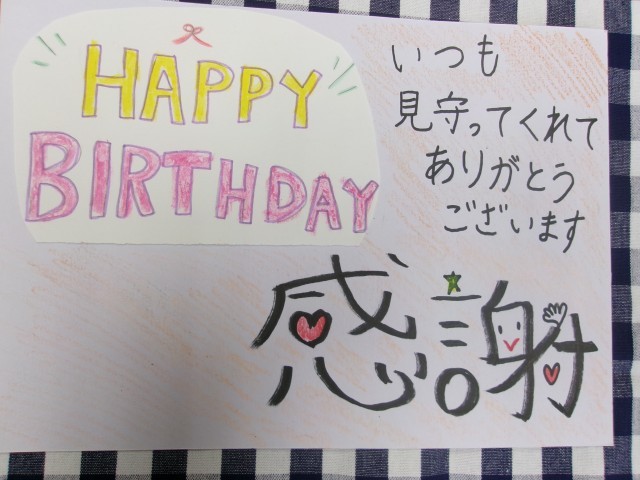 HAPPY
BIRTHDAY
いつも
見守ってくれて
ありがとう
ございます
感謝